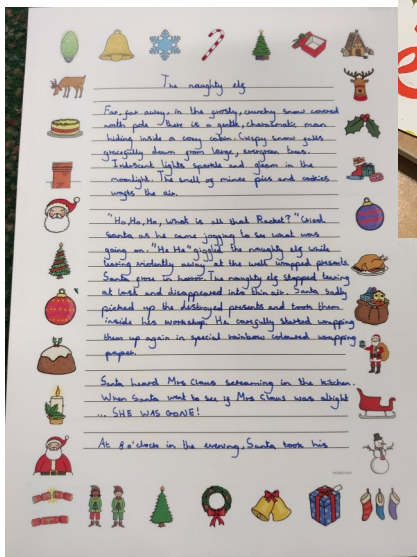 The naughty elf
Far, far away, in the frosty, crunchy snow covered
north pole. There is a gentle, charismatic man
hiding inside a cosy cabin. Crispy snow falls
gracefully down from large, evergreen trees.
Iridescent lights sparkle and gleam in the
moonlight. The smell of mince pies and cookies
wafts the air.
"Ho, Ho, Ho, What is all that Racket?" Cried
Santa as he came jogging to see what was
going on. "He He" giggled the naughty elf while
tearing violently away at the well wrapped presents
Santa froze in horror. The naughty elf stopped tearing
at last and disappeared into thin air. Santa sadly
picked up the destroyed presents and took them
inside his workshop. He carefully started wrapping
them up again in special rainbow coloured wrapping
paper.
Santa heard Mrs Claus screaming in the kitchen.
When Santa went to see if Mrs Claus was alright
... SHE WAS GONE!
At 8 o'clock in the evening, Santa took his